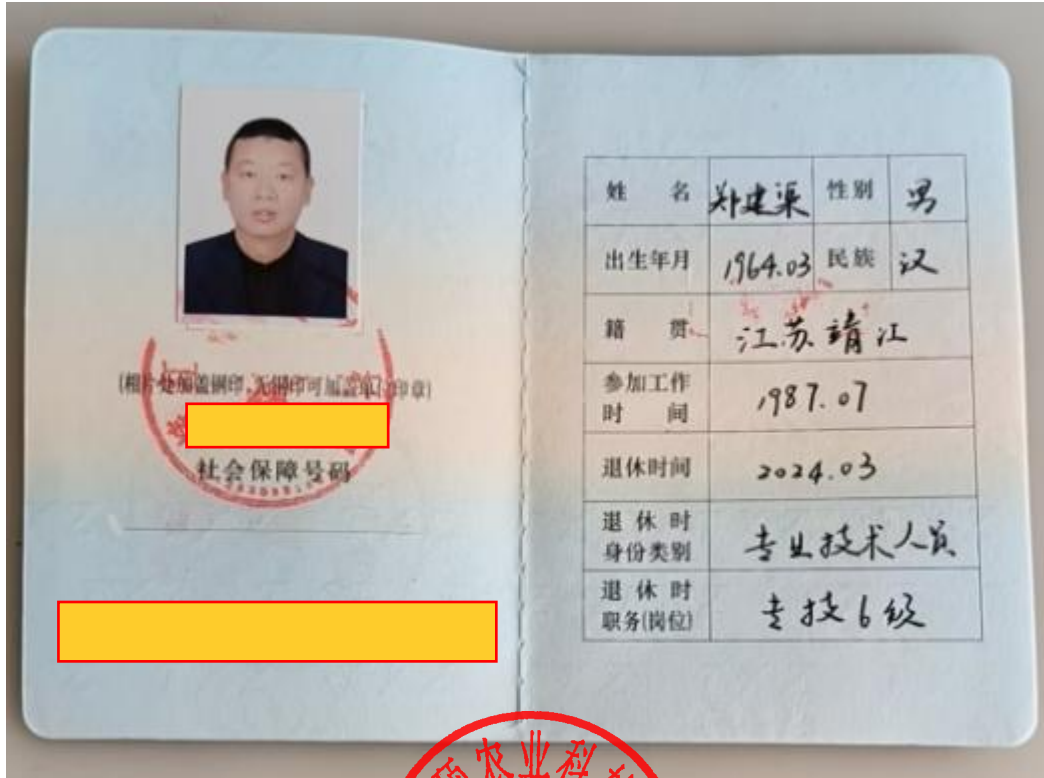 (相片处加盖钢印,无钢印可加盖单位印章)
社会保障号码
姓 名 郑建渠 性别 男
出生年月 1964.03 民族 汉
籍 贯 江苏靖江
参加工作
时 间 1987.07
退休时间 2024.03
退 休 时
身份类别 专业技术人员
退 休 时
职务(岗位) 专技6级
农业科